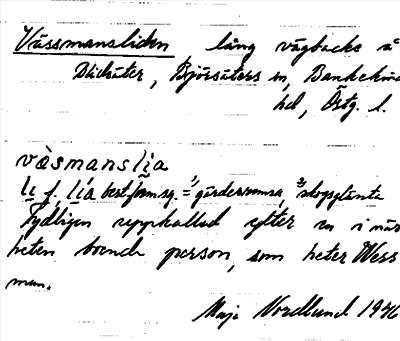 Vässmansliden lång vägbacke å
Blacksäter, Björsäters sn, Bankekinds
hd, Östg. l.
vàsmanslia
li f. lia best. form sg. = 1/ gärdesremsa, 2/ skogsglänta
Tydligen uppkallad efter en i när
heten boende person, som heter Wess
man.
Maja Nordlund 1946